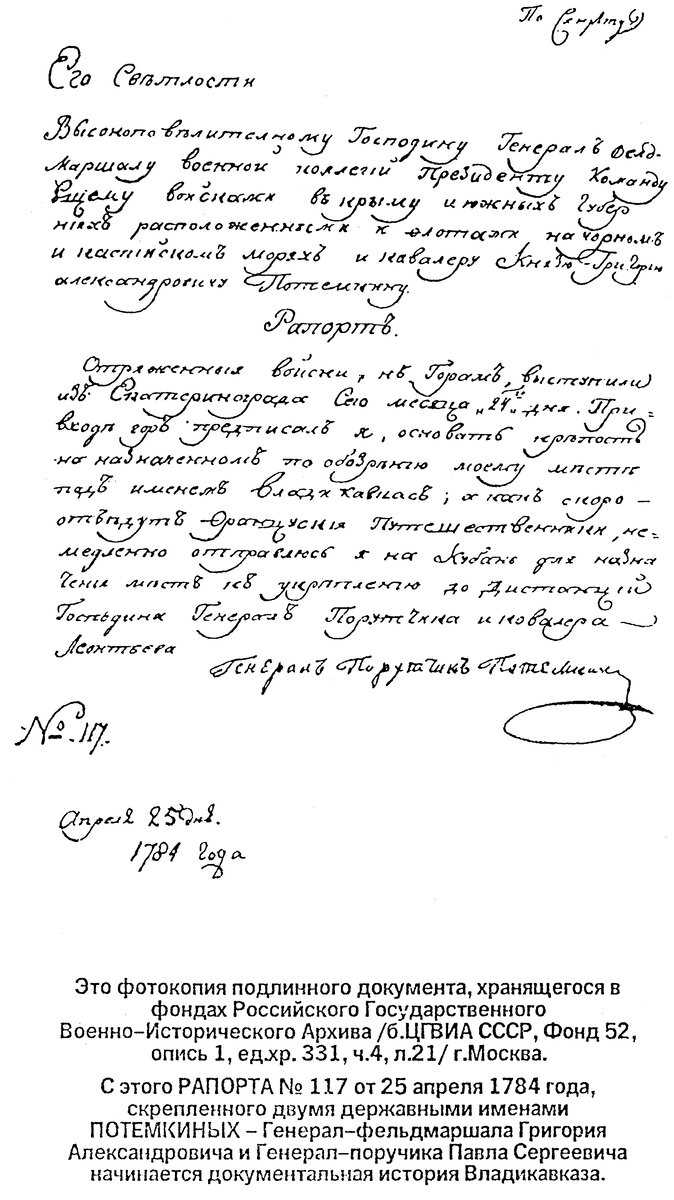 По Секрету
Его Свѣтлости
Высокоповѣлителному Господину Генералъ Фелд-
Маршалу военной коллегіи Президенту Команду
ющему войсками въ крыму и южныхъ Губер
ніяхъ расположенными и флотами на чорномъ
и каспійскомъ моряхъ и кавалеру Князю Григорію
александровичу Потемкину.
Рапортъ.
Отряженныя войски, къ Горамъ, выступили
изъ Екатеринограда Сего месяца „24го„ дня. При
входѣ въ предписалъ я, основать крѣпость
на назначенномъ по обозрѣнію моему мѣстѣ
подъ именемъ владикавкасъ; и какъ скоро —
отъѣдутъ Французскія Путешественники, не=
медленно отправлюсь я на Кубань для назна
чени мѣстъ къ укрѣпленію до Дистанціи
Господина Генералъ Порутчика и кавалера —
Леонтьева
Генералъ Порутчикъ Потемкинъ
№. 117.
Апреля 25 дня.
1784 года
Это фотокопия подлинного документа, хранящегося в
фондах Российского Государственного
Военно-Исторического Архива /б.ЦГВИА СССР, Фонд 52,
опись 1, ед.хр. 331, ч.4, л.21/ г.Москва.
С этого РАПОРТА № 117 от 25 апреля 1784 года,
скрепленного двумя державными именами
ПОТЕМКИНЫХ – Генерал-фельдмаршала Григория
Александровича и Генерал-поручика Павла Сергеевича
начинается документальная история Владикавказа.